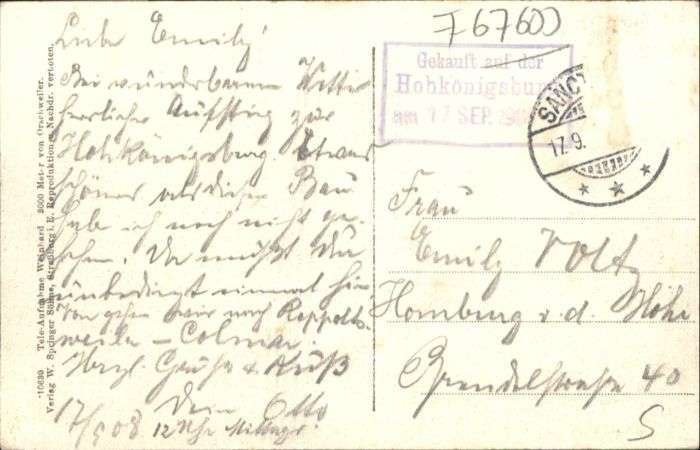 767600
Liebe Emily!
Bei wunderbarem Wetter
herrlicher Aufstieg zur
Hohkönigsburg. Etwas
schöneres als diesen Bau
habe ich noch nicht ge-
sehen. Du mußt Du
unbedingt einmal hin
Von gehen wir nach Rappolts-
weiler – Colmar.
Herzl. Grüße & Kuß
Dein Otto
17/9 08 12 Uhr Mittags.
Gekauft auf der
Hohkönigsburg
am 17 SEP.
SANCT
17.9.
Frau
Emily Voltz
Homburg v. d. Höhe
Brendelstrasse 40
S
*10639. Tele-Aufnahme Weinhard 8600 Met-r von Orschweiler.
Verlag W. Springer Söhne, Straßburg i. E. Reproduktion u. Nachdr. verboten.